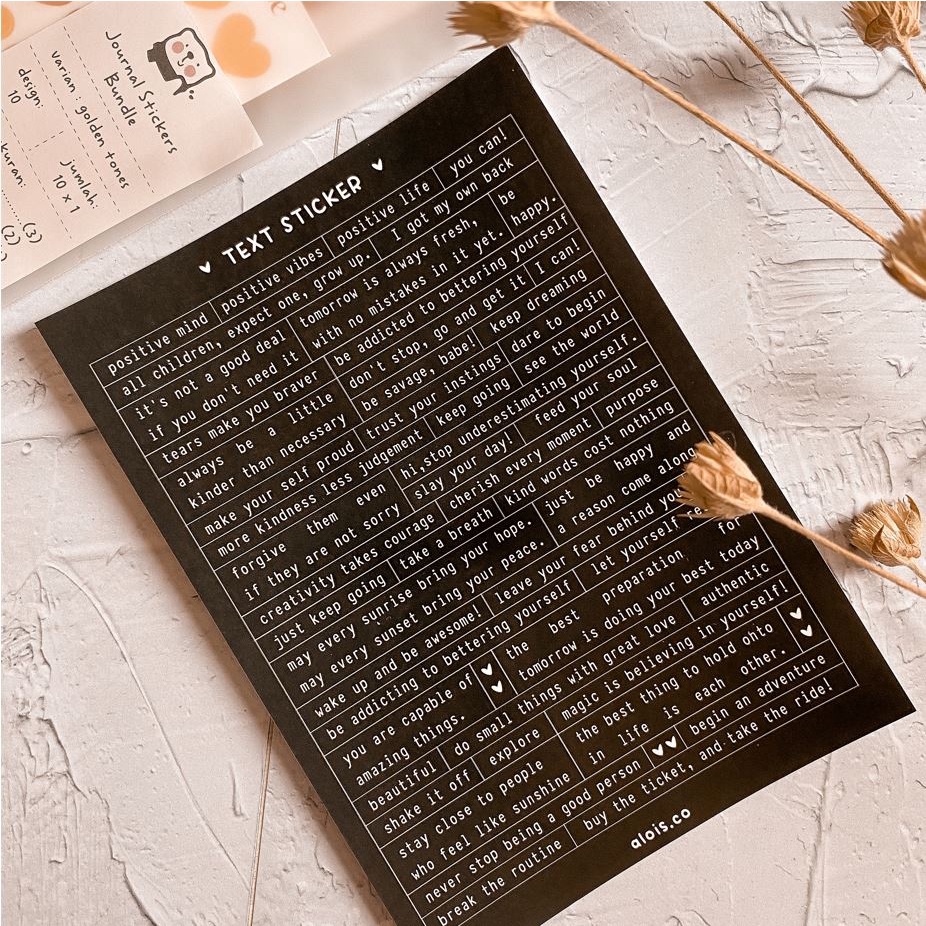 Journal Stickers
Bundle
varian : golden tones
design:
10
jumlah:
10 x 1
kuran:
(3)
(2)
TEXT STICKER
positive mind
positive vibes
positive life
you can!
all children, expect one, grow up.
I got my own back
it's not a good deal
if you don't need it
tomorrow is always fresh,
with no mistakes in it yet.
be
happy.
tears make you braver
be addicted to bettering yourself
always be a little
kinder than necessary
don't stop, go and get it
I can!
be savage, babe!
keep dreaming
make your self proud
trust your instings
dare to begin
more kindness less judgement
keep going
see the world
forgive them even
if they are not sorry
hi,stop underestimating yourself.
slay your day!
feed your soul
creativity takes courage
cherish every moment
purpose
just keep going
take a breath
kind words cost nothing
may every sunrise bring your hope.
may every sunset bring your peace.
just be happy and
a reason come along
wake up and be awesome!
leave your fear behind you
be addicting to bettering yourself
let yourself
you are capable of
amazing things.
the best preparation for
tomorrow is doing your best today
beautiful
do small things with great love
authentic
shake it off
explore
magic is believing in yourself!
stay close to people
who feel like sunshine
the best thing to hold ohto
in life is each other.
never stop being a good person
begin an adventure
break the routine
buy the ticket, and take the ride!
alois.co